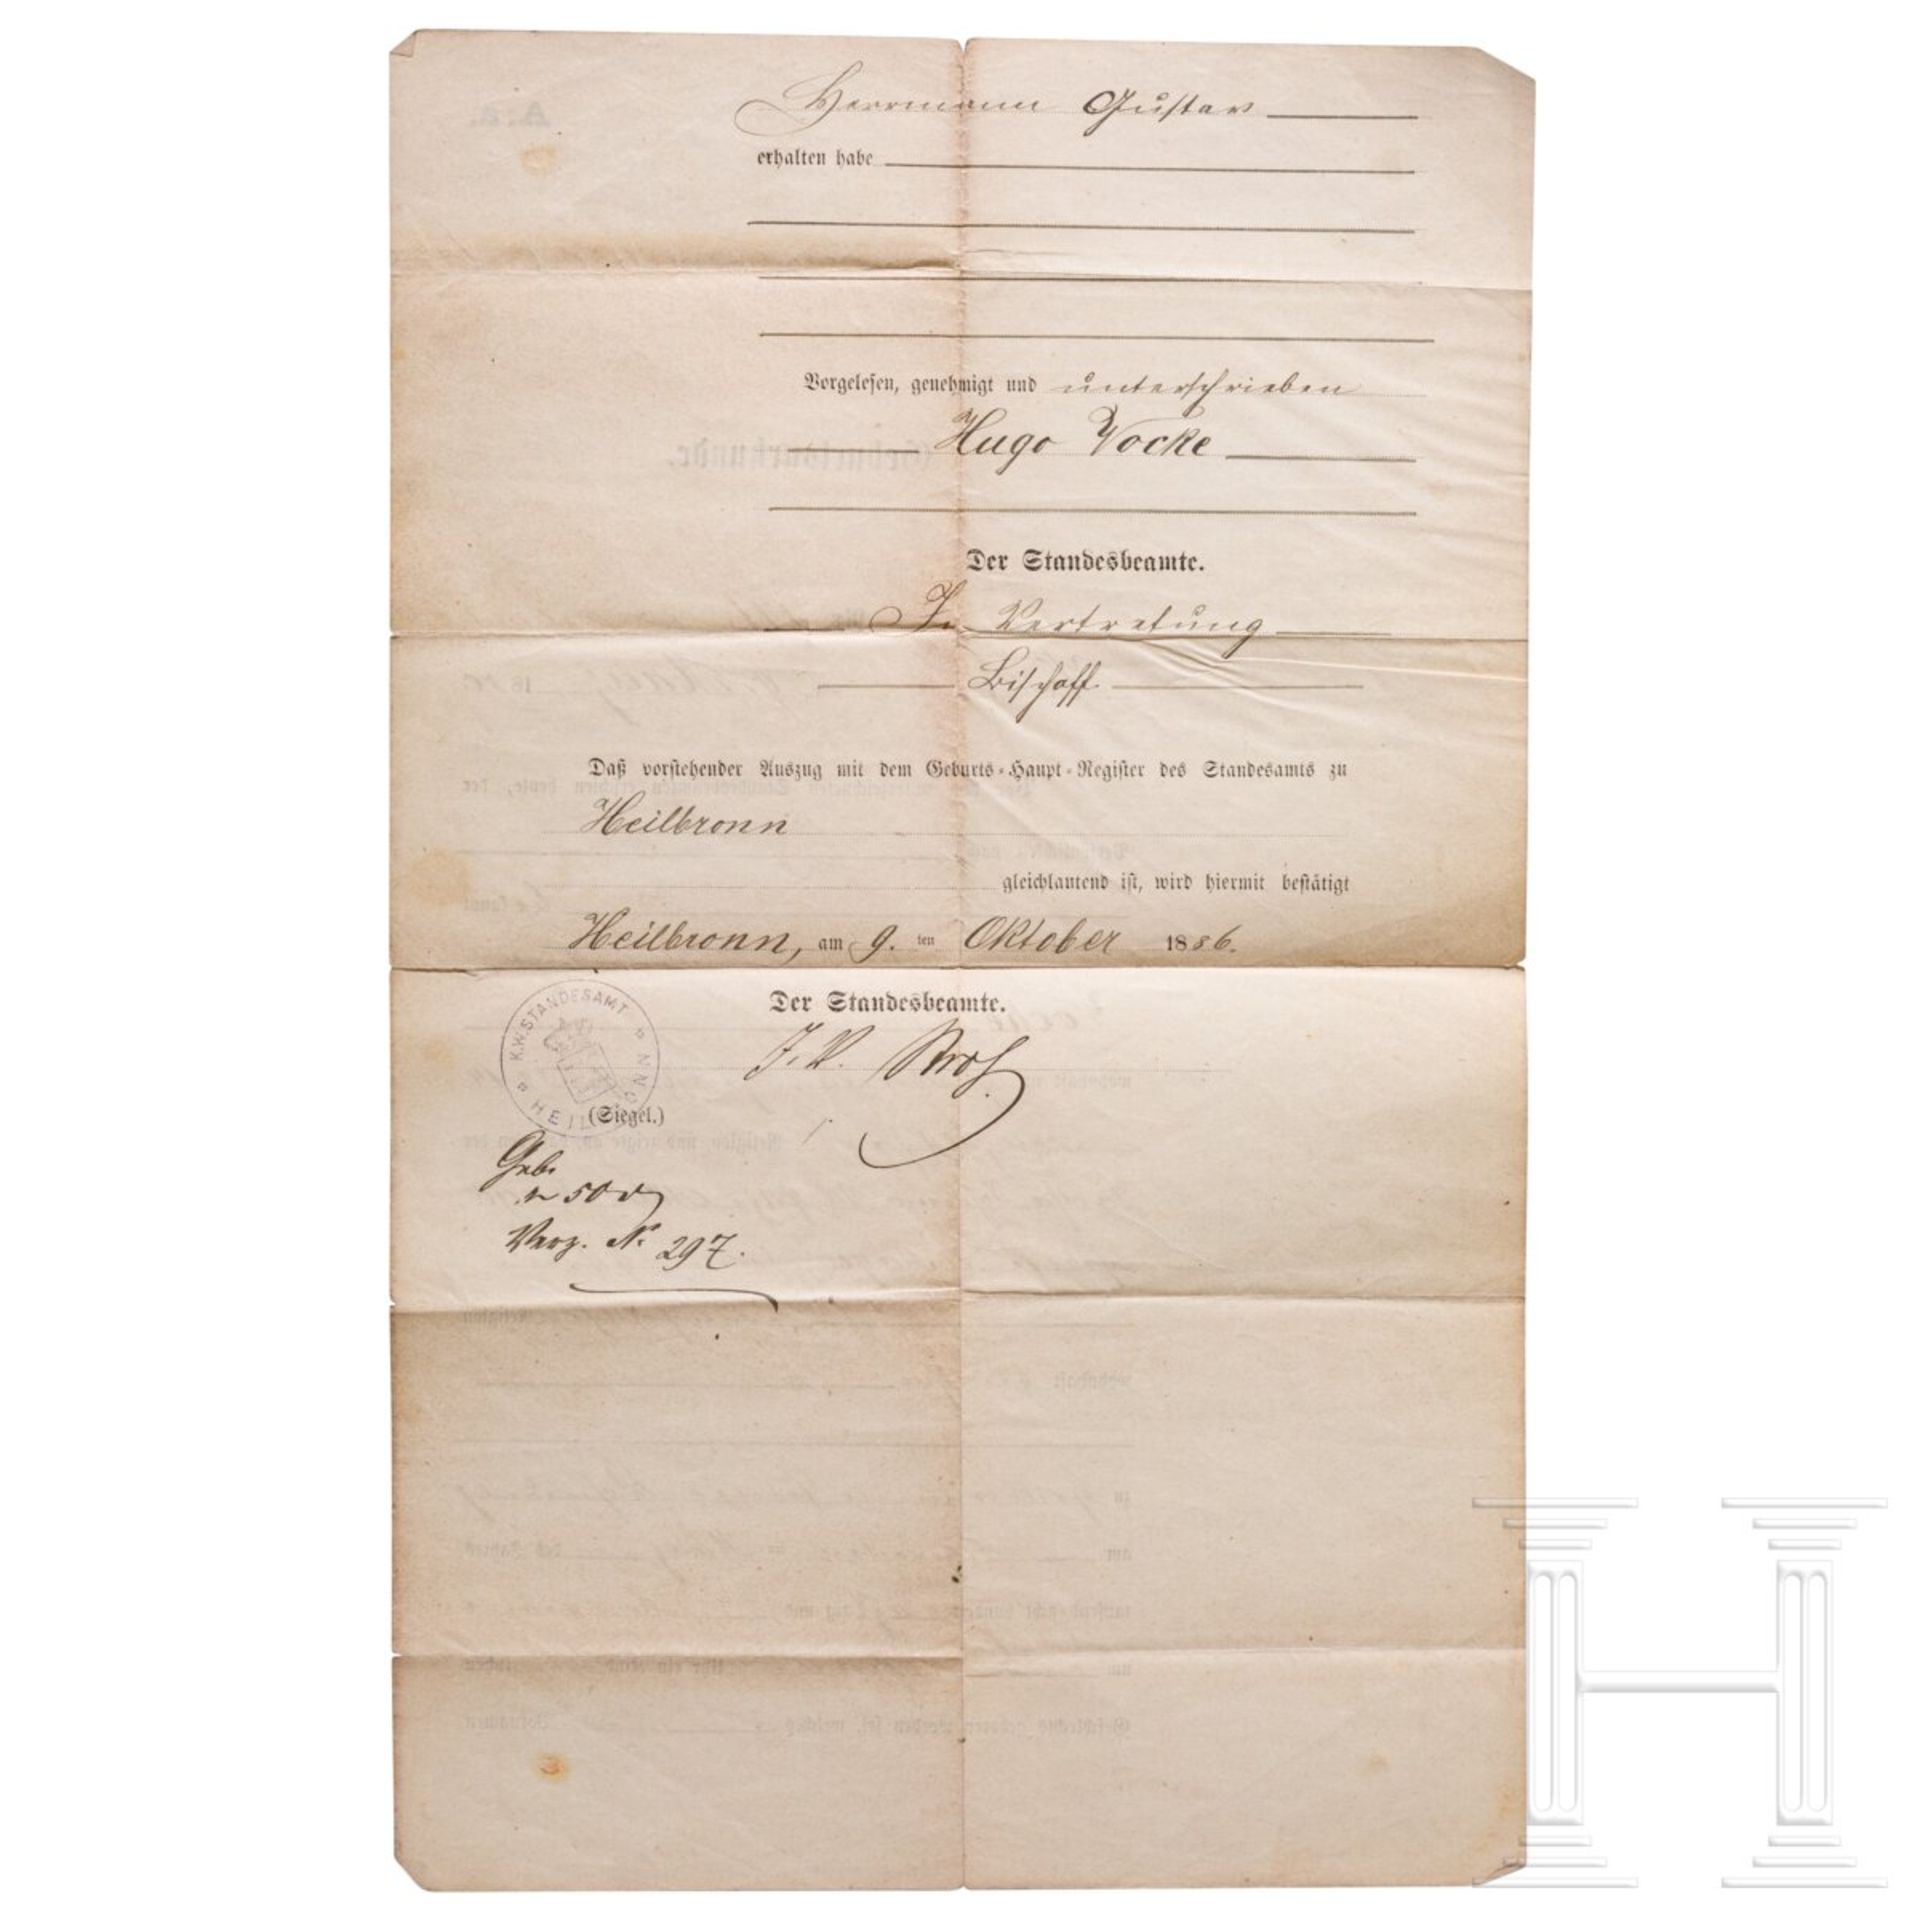 Herrmann Gustav
erhalten habe
Vorgelesen, genehmigt und unterschrieben
Hugo Vocke
Der Standesbeamte.
In Vertretung
Bischoff.
Daß vorstehender Auszug mit dem Geburts-Haupt-Register des Standesamts zu
Heilbronn
gleichlautend ist, wird hiermit bestätigt
Heilbronn, am 9. ten Oktober 1886.
Der Standesbeamte.
K.W. STANDESAMT HEILBRONN
J. V.
(Siegel.)
Geb.
50
Verz. № 297.
H